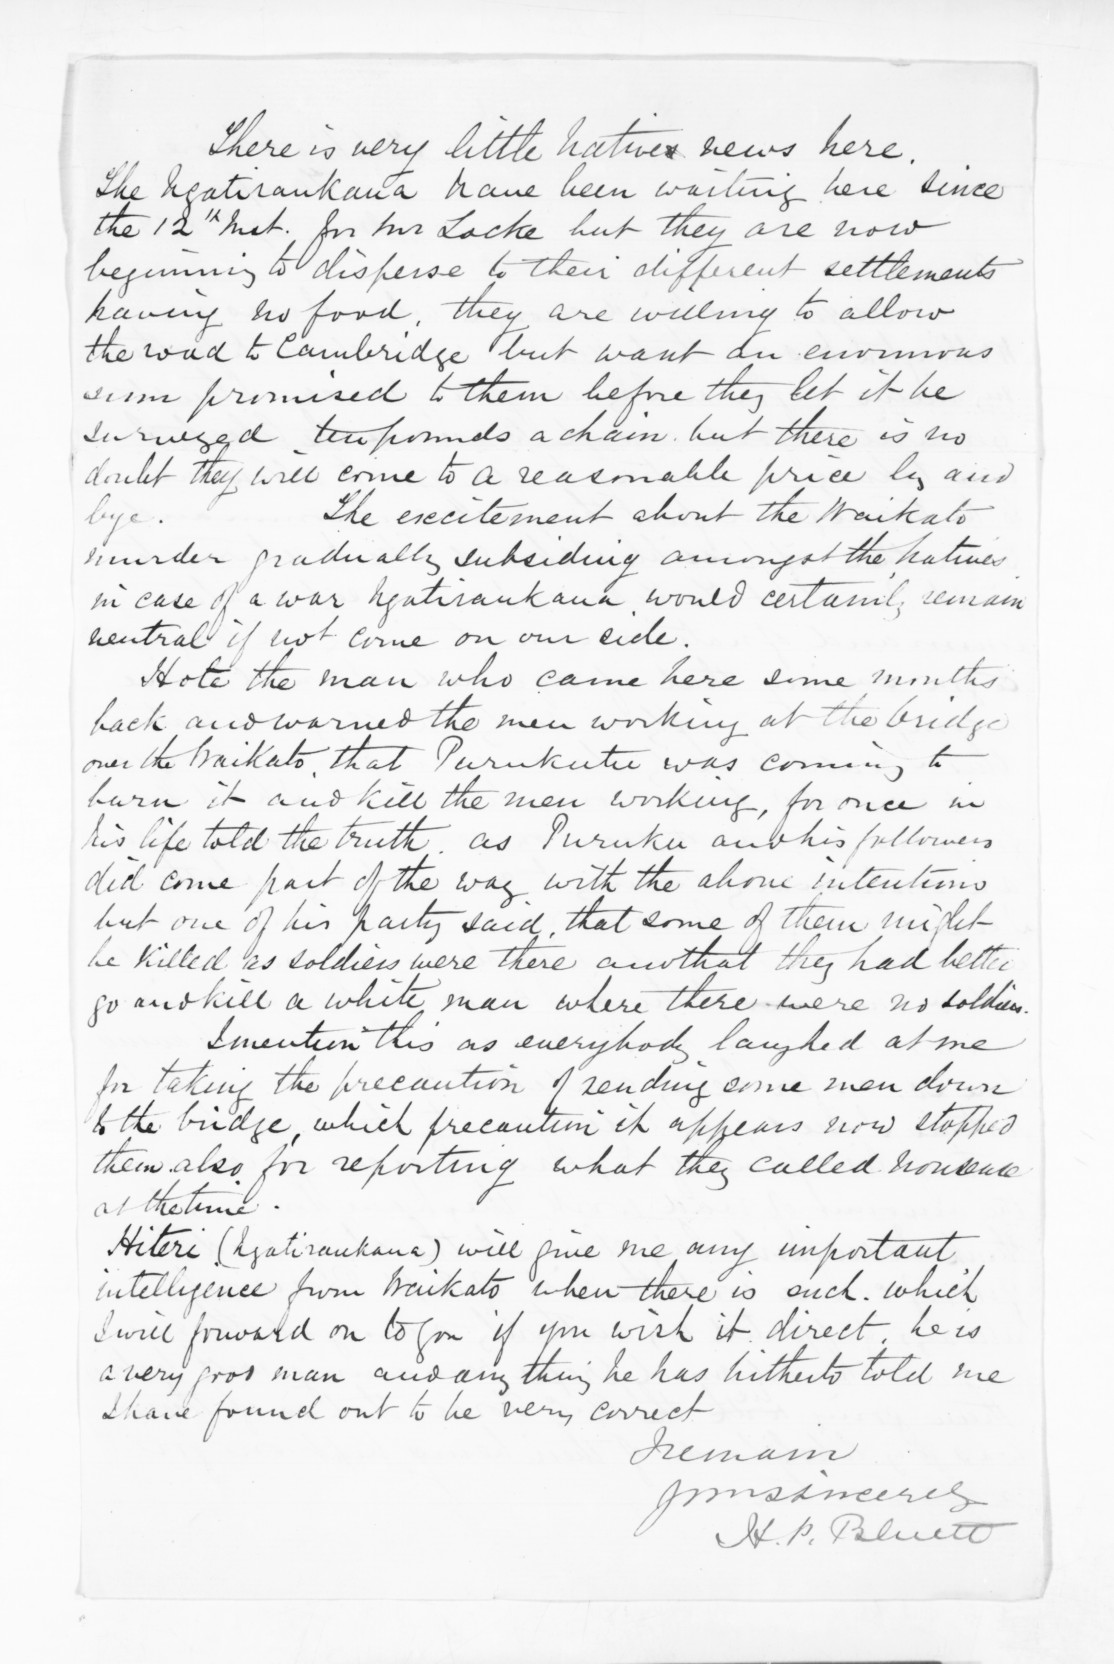 There is very little Native news here.
The Ngatiraukaua have been waiting here since
the 12th Inst. for Mr Locke but they are now
beginning to disperse to their different settlements
having no food, they are willing to allow
the road to Cambridge but want an enormous
sum promised to them before they let it be
surveyed ten pounds a chain. but there is no
doubt they will come to a reasonable price by and
bye. The excitement about the Waikato
murder gradually subsiding amongst the Natives
in case of a war Ngatiraukaua would certainly remain
neutral if not come on our side.
Hote the man who came here some months
back and warned the men working at the bridge
over the Waikato, that Purukutu was coming to
burn it and kill the men working, for once in
his life told the truth. as Puruku and his followers
did come part of the way with the above intentions
but one of his party said, that some of them might
be killed as soldiers were there and that they had better
go and kill a white man where there were no soldiers.
I mention this as everybody laughed at me
for taking the precaution of sending some men down
to the bridge, which precaution it appears now stopped
them. also for reporting what they called nonsense
at the time.
Hiteri (Ngatiraukaua) will give me any important
intelligence from Waikato when there is such. which
I will forward on to you if you wish it direct. he is
a very good man and any thing he has hitherto told me
I have found out to be very correct
I remain
yours sincerely
H. P. Bluett